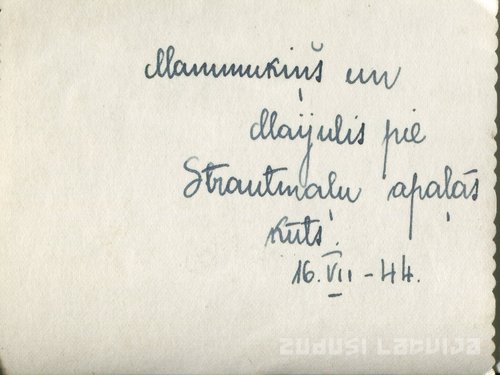 Mammukiņš un
Maijulis pie
Strautmaļu apaļās
kūts.
16.VII-44.
ZUDUSI LATVIJA